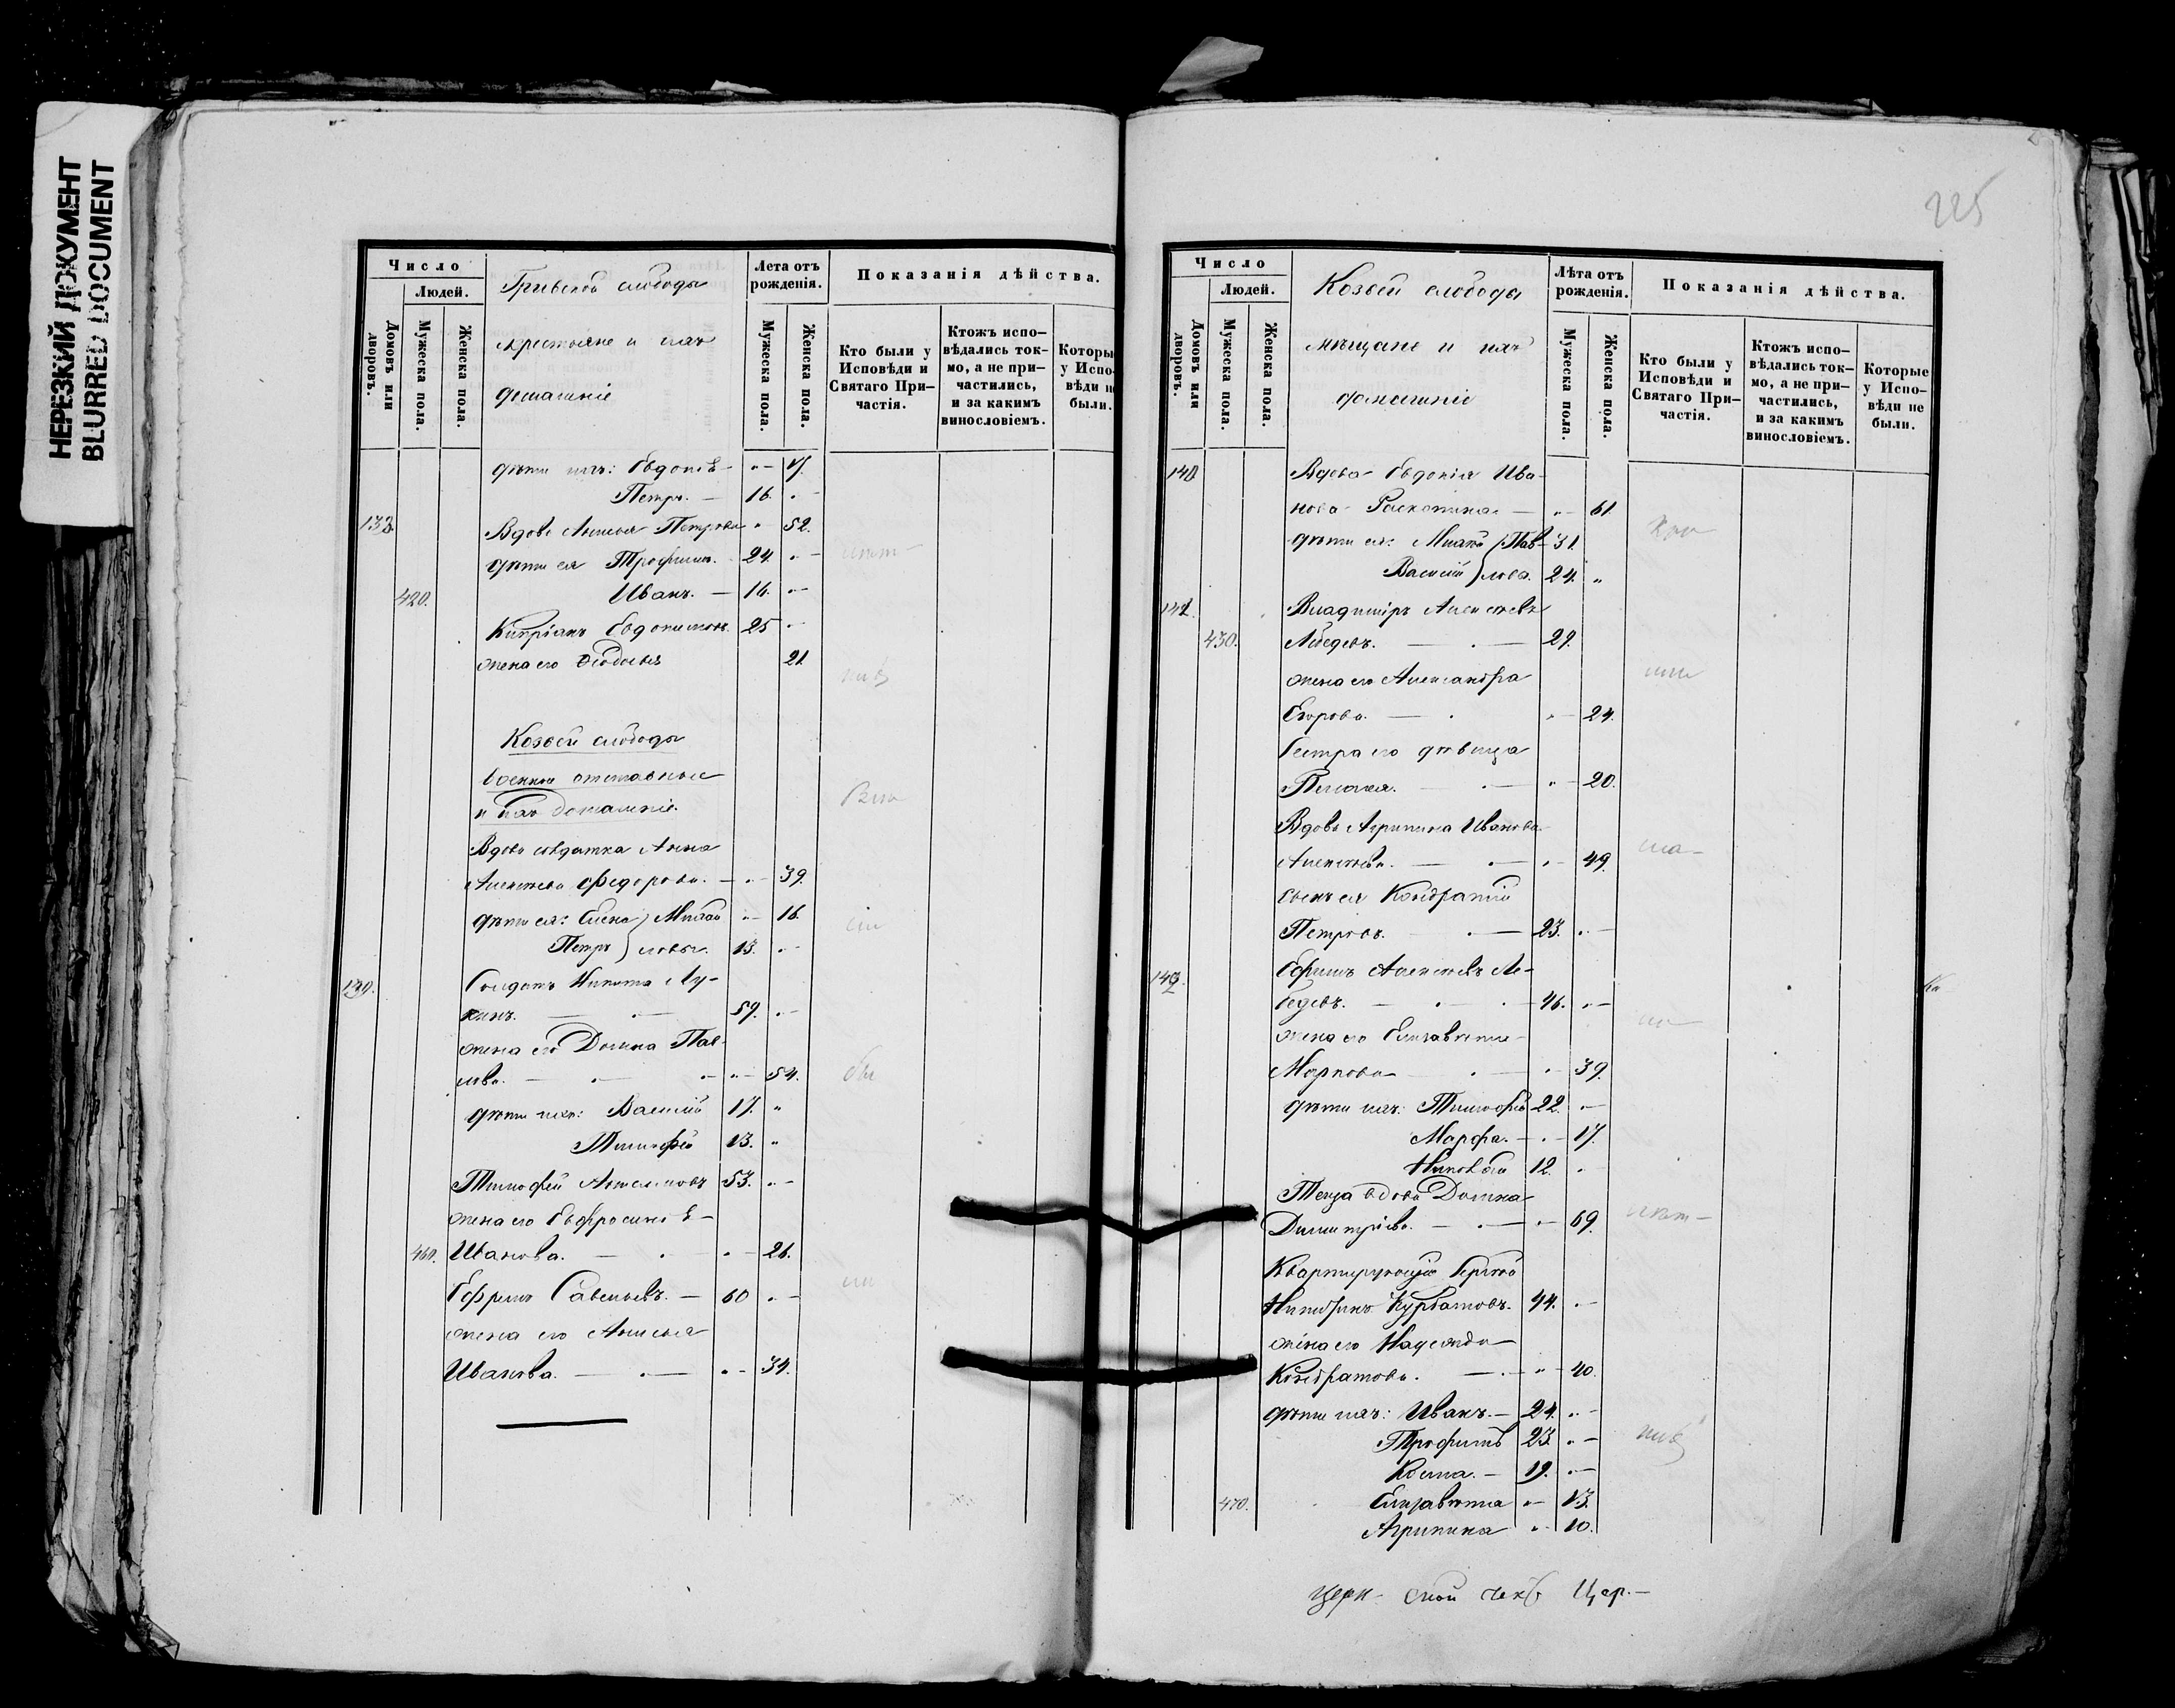 НЕРЕЗКИЙ ДОКУМЕНТ
BLURRED DOCUMENT
Число
Людей.
Домовъ или дворовъ.
Мужеска пола.
Женска пола.
слободы
крестьяне и ихъ
домашніе
Лета отъ рожденія.
Мужеска пола.
Женска пола.
Показанія дѣйства.
Кто были у Исповѣди и Святаго Причастія.
Ктожъ исповѣдались токмо, а не причастились, и за какимъ винословіемъ.
Которы у Испо вѣди н были.
дѣти ихъ: Евдокія 17.
Петръ. 16.
133 Вдова Анисья Петрова 52.
дѣти ея Трофимъ. 24.
420. Иванъ. 16.
Кипріанъ Евдокимовъ. 25
жена его Ѳеодосья 21
Козьей слободы
военные отставные
и ихъ домашніе.
Вдова солдатка Анна
Алексѣева Федорова. 39.
дѣти ея: Елена Михай 16.
Петръ ловы. 13.
139. Солдатъ Никита Лу-
кинъ. 59.
жена его Домна Пав-
лова. 54.
дѣти ихъ: Василій 17.
Тимофей 13.
Тимофей 53.
жена его Евфросинія
460. Иванова. 26.
Ефремъ Савельевъ. 60
жена его Анисья
Иванова. 34.
225
Число
Людей.
Домовъ или дворовъ.
Мужеска пола.
Женска пола.
Козьей слободы
мѣщане и ихъ
домашніе
Лѣта отъ рожденія.
Мужеска пола.
Женска пола.
Показанія дѣйства.
Кто были у Исповѣди и Святаго Причастія.
Ктожъ исповѣдались токмо, а не причастились, и за какимъ винословіемъ.
Которые у Исповѣди не были.
140 Вдова Евдокія Ива-
нова 61.
дѣти ея: Пав- 31.
Василій лова. 24.
141. Владиміръ Алексѣевъ
430. Лебедевъ. 29.
жена его Александра
Егорова. 24.
Сестра его дѣвица
Пелагея. 20.
Вдова Агрипина Иванова
Алексѣева. 49.
сынъ ея Кондратій
Петровъ. 23.
142. Ефимъ Алексѣевъ Ле-
бедевъ. 46.
жена его Елизавета
Маркова 39.
дѣти ихъ: Тимофей 22.
Марфа. 17.
Николай 12.
Теща вдова Домна
Димитріева. 69.
Квартирующіе Сергѣй
Курбатовъ. 44.
жена его Надежда
Кондратова. 40.
дѣти ихъ: Иванъ. 24.
Трофимъ 23.
Косма. 19.
470. Елизавета 13.
Агрипина 10.